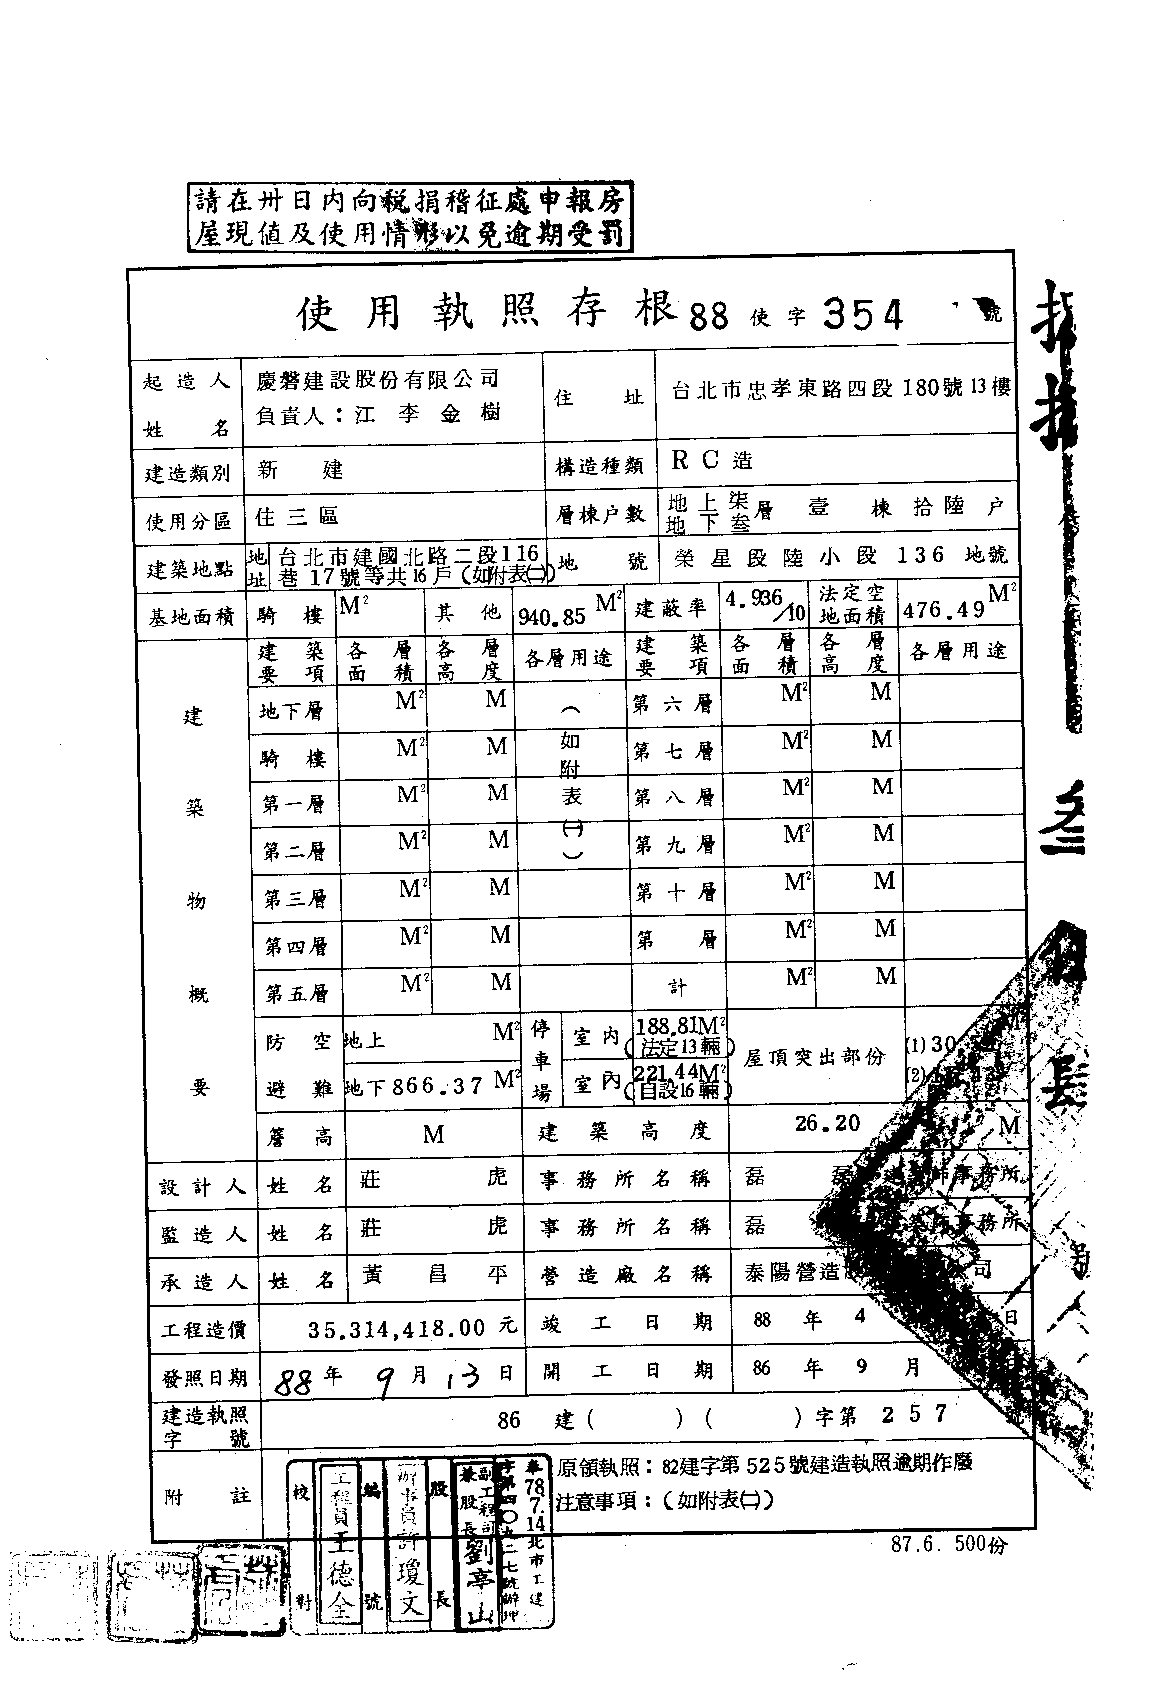 請在卅日内向稅捐稽征處申報房
屋現值及使用情形以免逾期受罰
使用執照存根 88 使字 354 號
起造人姓名 慶磐建設股份有限公司 住址 台北市忠孝東路四段180號13樓
負責人：江李金樹
建造類別 新建 構造種類 RC造
使用分區 住三區 層棟户數 地上柒層 地下叁層 壹棟拾陸户
建築地點 地址 台北市建國北路二段116 地號 榮星段陸小段136地號
巷17號等共16戶(如附表㈡)
基地面積 騎樓 M² 其他 940.85 M² 建蔽率 4.936/10 法定空地面積 476.49 M²
建築物概要
建築要項 各層面積 各層高度 各層用途 建築要項 各層面積 各層高度 各層用途
地下層 M² M (如附表㈠) 第六層 M² M
騎樓 M² M 第七層 M² M
第一層 M² M 第八層 M² M
第二層 M² M 第九層 M² M
第三層 M² M 第十層 M² M
第四層 M² M 第 層 M² M
第五層 M² M 計 M² M
防空避難 地上 M² 停車場 室内 188.81M² (法定13輛) 屋頂突出部份 (1)30
地下866.37 M² 室內 221.44M² (自設16輛) (2)
簷高 M 建築高度 26.20 M
設計人 姓名 莊虎 事務所名稱 磊磊 師事務所
監造人 姓名 莊虎 事務所名稱 磊 築師事務所
承造人 姓名 黃昌平 營造廠名稱 泰陽營造 司
工程造價 35.314,418.00元 竣工日期 88年4 日
發照日期 88年9月13日 開工日期 86年9月
建造執照字號 86建( )( )字第257號
附註 原領執照：82建字第525號建造執照逾期作廢
注意事項：(如附表㈡)
校對 工程員王德全
編號 辦事員許瓊文
股長 副工程司兼股長劉享山
奉78.7.14北市工建
字第四〇九二七號辦理
87.6. 500份